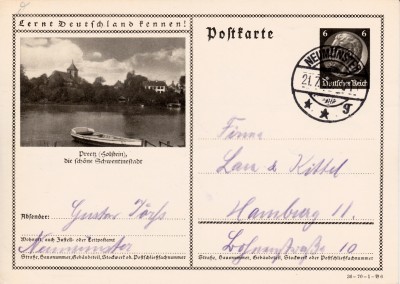 Lernt Deutschland kennen!
Postkarte
6 6
Deutsches Reich
NEUMÜNSTER
21.7.
g
Preetz (Holstein),
die schöne Schwentinestadt
Absender: Gustav
Wohnort, auch Zustell- oder Leitpostamt
Neumünster
Straße, Hausnummer, Gebäudeteil, Stockwerk od. Postschließfachnummer
Firma
& Kittel
Hamburg 11,
10
Straße, Hausnummer, Gebäudeteil, Stockwerk oder Postschließfachnummer